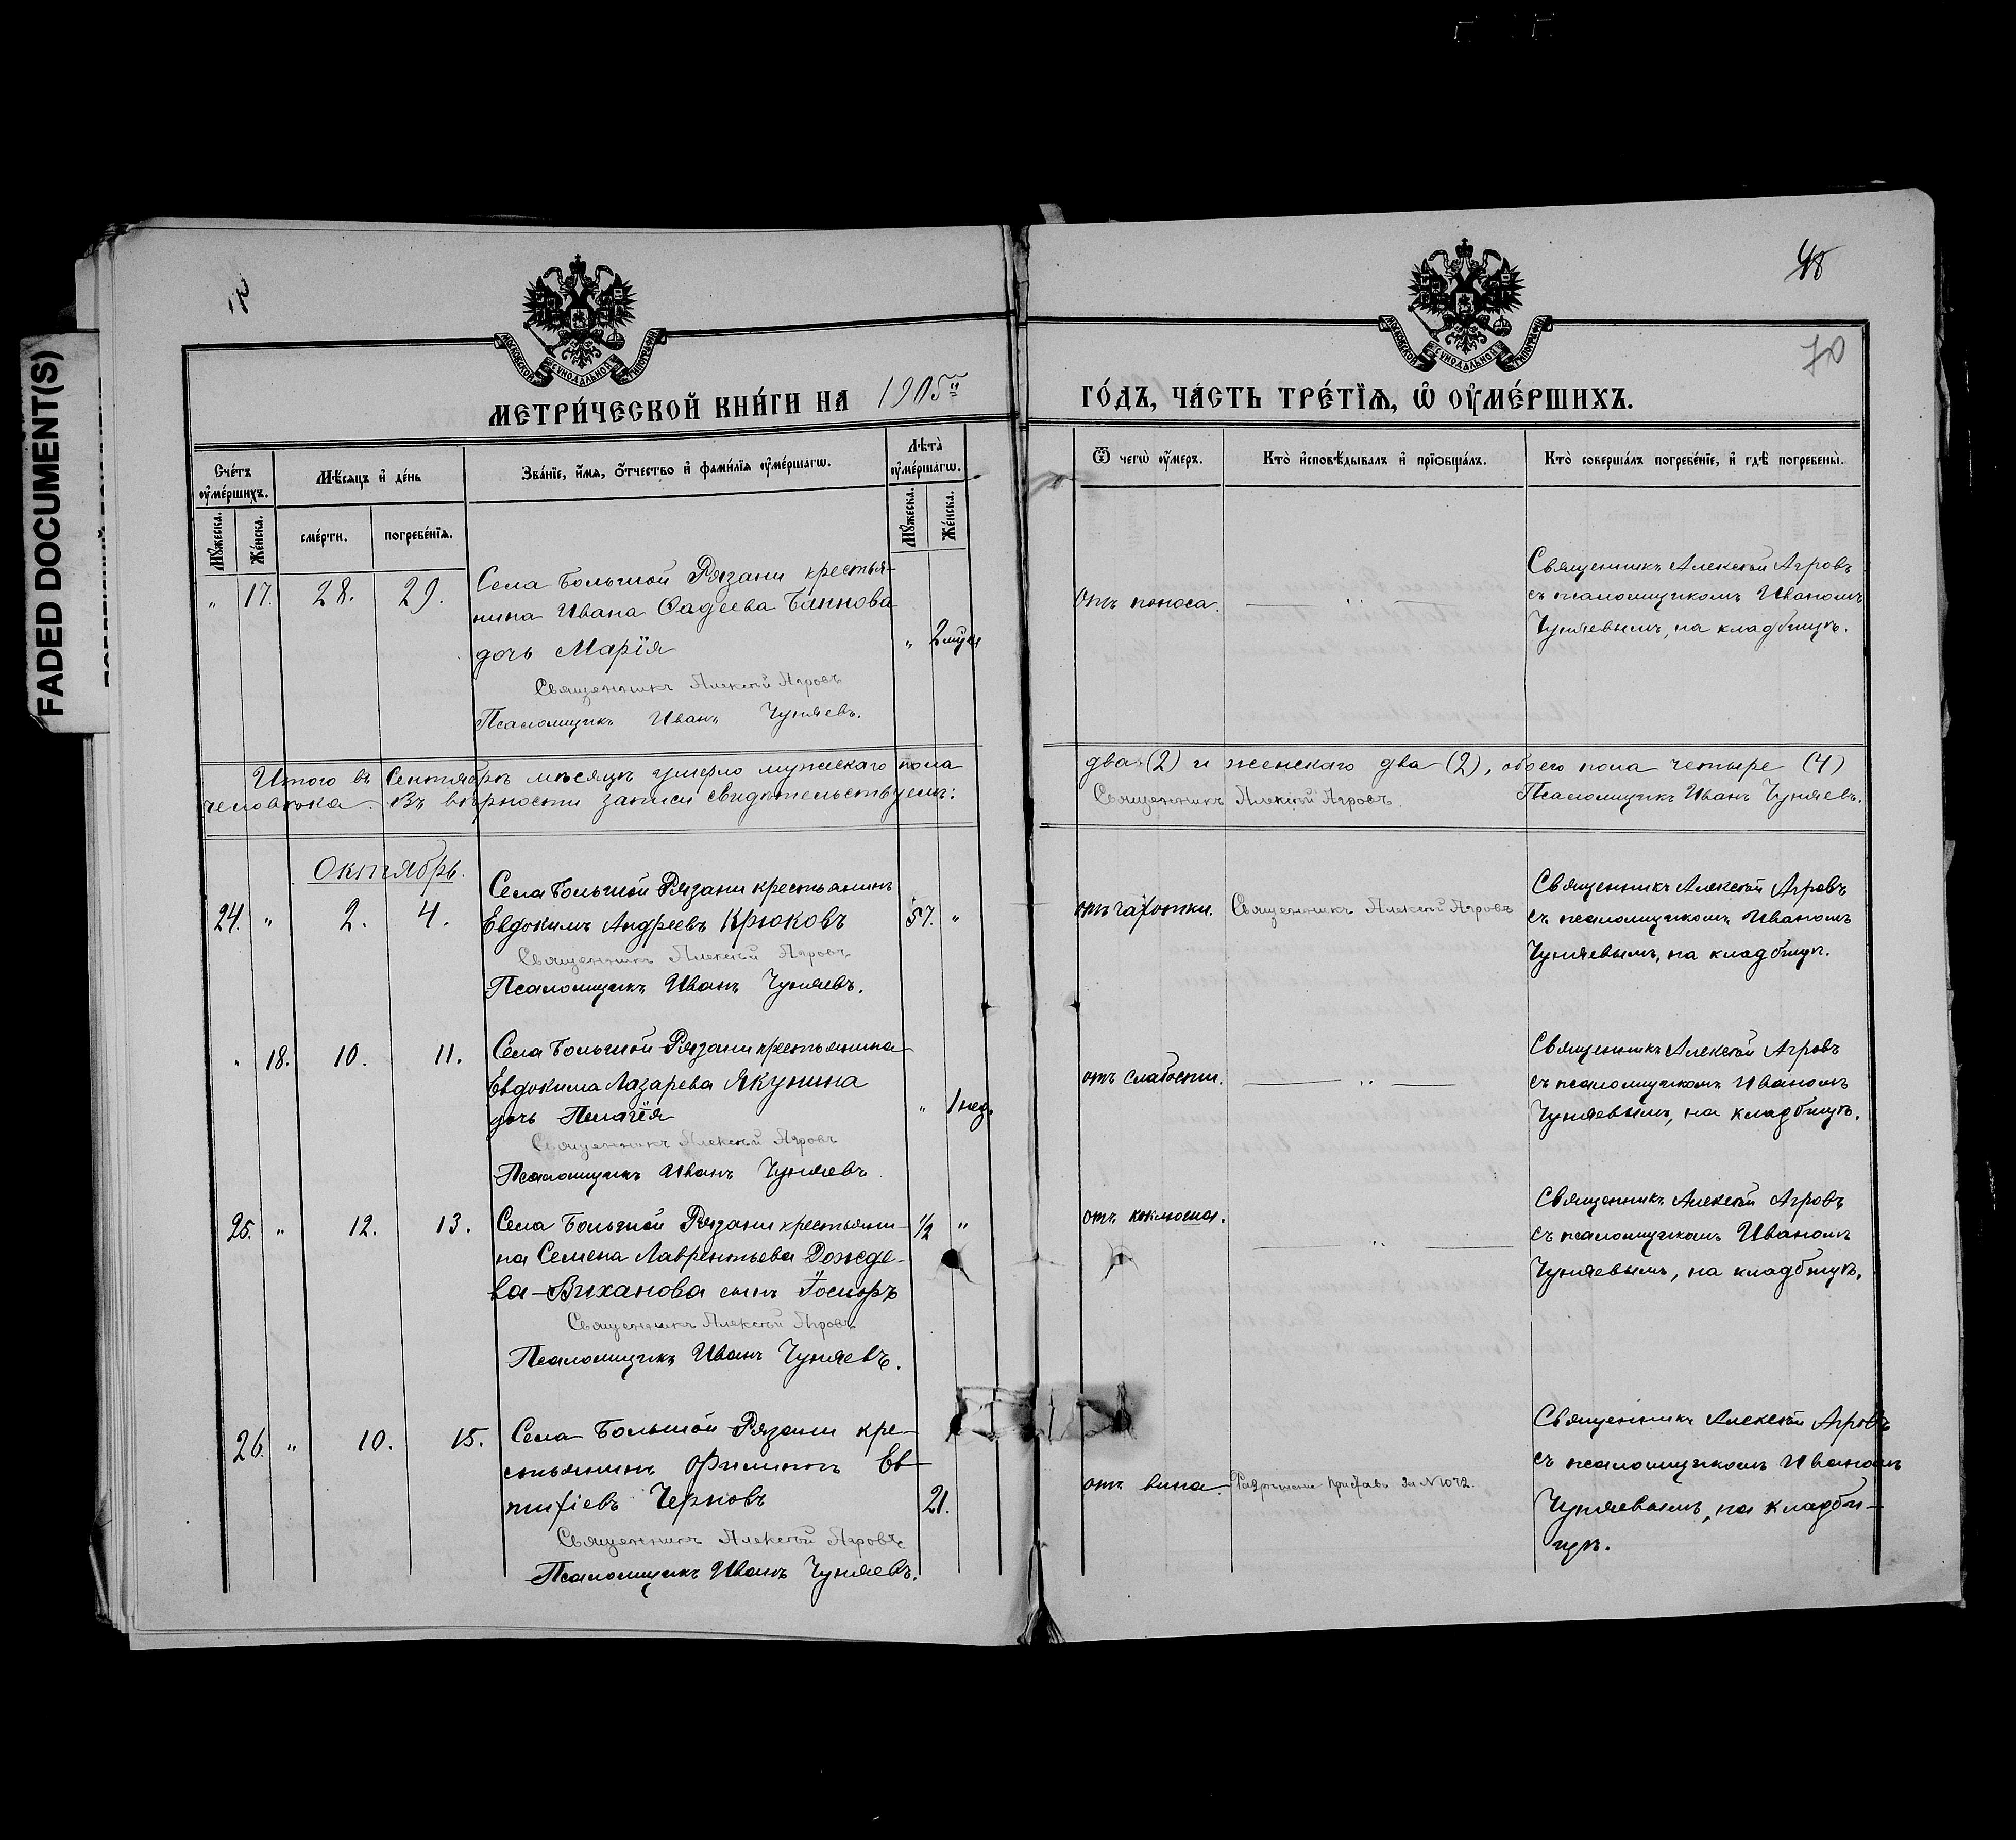 48
70
FADED DOCUMENT(S)
МОСКОВСКОЙ СѴНОДАЛЬНОЙ ТИПОГРАФІИ
МОСКОВСКОЙ СѴНОДАЛЬНОЙ ТИПОГРАФІИ
МЕТРИ́ЧЕСКОЙ КНИ́ГИ НА 1905й ГО́ДЪ, ЧА́СТЬ ТРЕ́ТІѦ, Ѡ҆ ОУ҆МЕ́РШИХЪ.
Сче́тъ оу҆ме́ршихъ.
Мѣ́сѧцъ и҆ де́нь
Зва́нїе, и҆́мѧ, ѻ҆́тчество и҆ фами́лїѧ оу҆ме́ршагѡ.
Лѣ́та оу҆ме́ршагѡ.
Ѿ чегѡ̀ оу҆́меръ.
Кто̀ и҆сповѣ́дывалъ и҆ прїѡбща́лъ.
Кто̀ соверша́лъ погребе́нїе, и҆ гдѣ̀ погребены̀.
Мꙋ́жеска.
Же́нска.
сме́рти.
погребе́нїѧ.
Мꙋ́жеска.
Же́нска.
„ 17. 28. 29.
Села Большой Рязани крестья-
нина Ивана Ѳадеева Баннова
дочь Марія
„ 2 мѣся
Священникъ Алексѣй Агровъ
Псаломщикъ Иванъ Чуняевъ.
отъ поноса. — „ —
Священникъ Алексѣй Агровъ
съ псаломщикомъ Иваномъ
Чуняевымъ, на кладбищѣ.
Итого въ Сентябрѣ мѣсяцѣ умерло мужескаго пола два (2) и женскаго два (2), обоего пола четыре (4)
человѣка. Въ вѣрности записи свидѣтельствуемъ: Священникъ Алексѣй Агровъ. Псаломщикъ Иванъ Чуняевъ.
Октябрь.
24. „ 2. 4.
Села Большой Рязани крестьянинъ
Евдокимъ Андреевъ Крюковъ
57. „
Священникъ Алексѣй Агровъ
Псаломщикъ Иванъ Чуняевъ.
отъ чахотки. Священникъ Алексѣй Агровъ
Священникъ Алексѣй Агровъ
съ псаломщикомъ Иваномъ
Чуняевымъ, на кладбищѣ.
„ 18. 10. 11.
Села Большой Рязани крестьянина
Евдокима Лазарева Якунина
дочь Пелагія
„ 1 нед.
Священникъ Алексѣй Агровъ
Псаломщикъ Иванъ Чуняевъ.
отъ слабости. — „ —
Священникъ Алексѣй Агровъ
съ псаломщикомъ Иваномъ
Чуняевымъ, на кладбищѣ.
25. „ 12. 13.
Села Большой Рязани крестьяни-
на Семена Лаврентьева Дожде-
ва-Виханова сынъ
1/2 „
Священникъ Алексѣй Агровъ
Псаломщикъ Иванъ Чуняевъ.
отъ коклюша. — „ —
Священникъ Алексѣй Агровъ
съ псаломщикомъ Иваномъ
Чуняевымъ, на кладбищѣ.
26. „ 10. 15.
Села Большой Рязани кре-
стьянинъ Филиппъ Ев-
тифіевъ Черновъ
21.
Священникъ Алексѣй Агровъ
Псаломщикъ Иванъ Чуняевъ.
отъ вина. Разрѣшеніе Пристава за № 1072.
Священникъ Алексѣй Агровъ
съ псаломщикомъ Иваномъ
Чуняевымъ, на кладби-
щѣ.